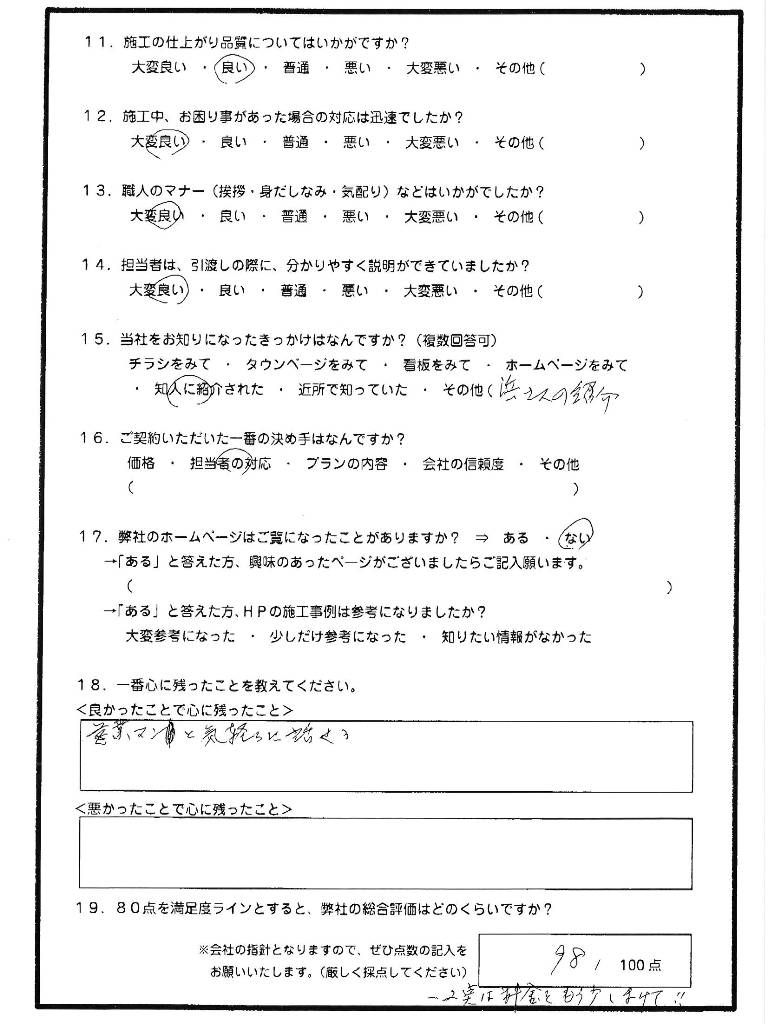 11．施工の仕上がり品質についてはいかがですか？
大変良い ・ 良い ・ 普通 ・ 悪い ・ 大変悪い ・ その他（　　　　　　）
12．施工中、お困り事があった場合の対応は迅速でしたか？
大変良い ・ 良い ・ 普通 ・ 悪い ・ 大変悪い ・ その他（　　　　　　）
13．職人のマナー（挨拶・身だしなみ・気配り）などはいかがでしたか？
大変良い ・ 良い ・ 普通 ・ 悪い ・ 大変悪い ・ その他（　　　　　　）
14．担当者は、引渡しの際に、分かりやすく説明ができていましたか？
大変良い ・ 良い ・ 普通 ・ 悪い ・ 大変悪い ・ その他（　　　　　　）
15．当社をお知りになったきっかけはなんですか？（複数回答可）
チラシをみて ・ タウンページをみて ・ 看板をみて ・ ホームページをみて
・ 知人に紹介された ・ 近所で知っていた ・ その他（浜さんの紹介
16．ご契約いただいた一番の決め手はなんですか？
価格 ・ 担当者の対応 ・ プランの内容 ・ 会社の信頼度 ・ その他
（　　　　　　）
17．弊社のホームページはご覧になったことがありますか？ ⇒ ある ・ ない
→「ある」と答えた方、興味のあったページがございましたらご記入願います。
（　　　　　　）
→「ある」と答えた方、HPの施工事例は参考になりましたか？
大変参考になった ・ 少しだけ参考になった ・ 知りたい情報がなかった
18．一番心に残ったことを教えてください。
＜良かったことで心に残ったこと＞
営業マンと気軽に
＜悪かったことで心に残ったこと＞
19．80点を満足度ラインとすると、弊社の総合評価はどのくらいですか？
※会社の指針となりますので、ぜひ点数の記入を
お願いいたします。（厳しく採点してください）
98 / 100点
実は料金をもう少しまけて!!